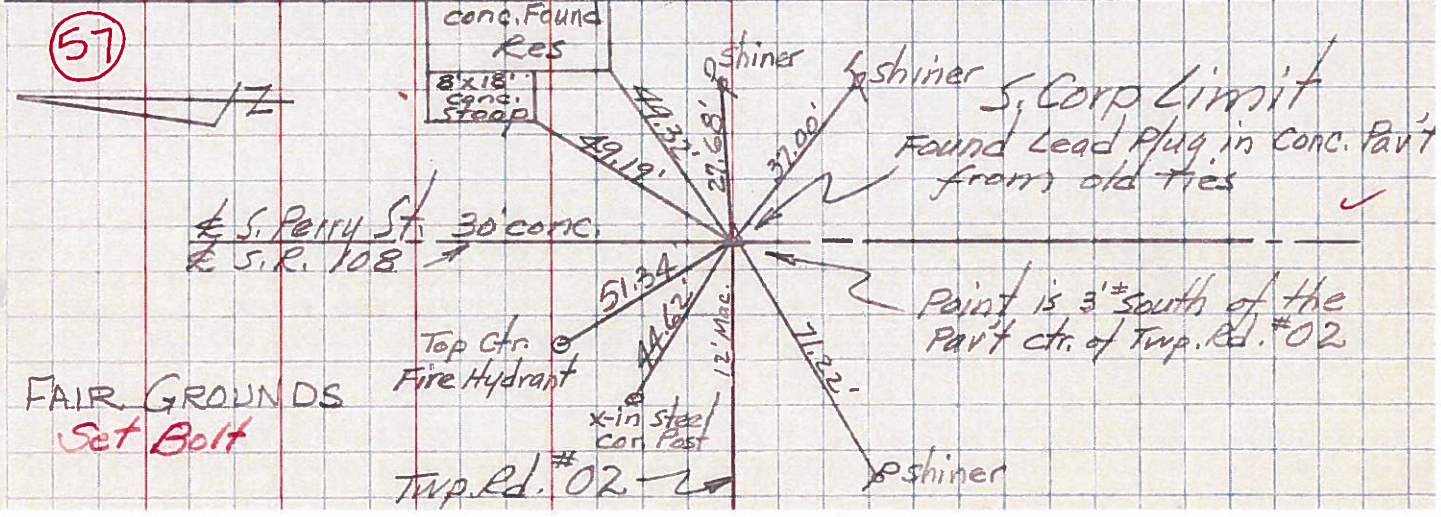 57
conc. Found
Res
8'x18'
conc.
Stoop
N
Shiner
shiner
49.19'
44.37'
27.68'
37.00'
S. Corp Limit
Found Lead Plug in Conc. Pav't
from old Ties
℄ S. Perry St. 30' conc.
℄ S.R. 108
51.34'
44.62'
12' Mac.
71.22'
Point is 3'± South of the
Pav't ctr. of Twp. Rd. #02
Top Ctr.
Fire Hydrant
x-in Steel
cor. Post
FAIR GROUNDS
Set Bolt
Twp. Rd. #02
shiner